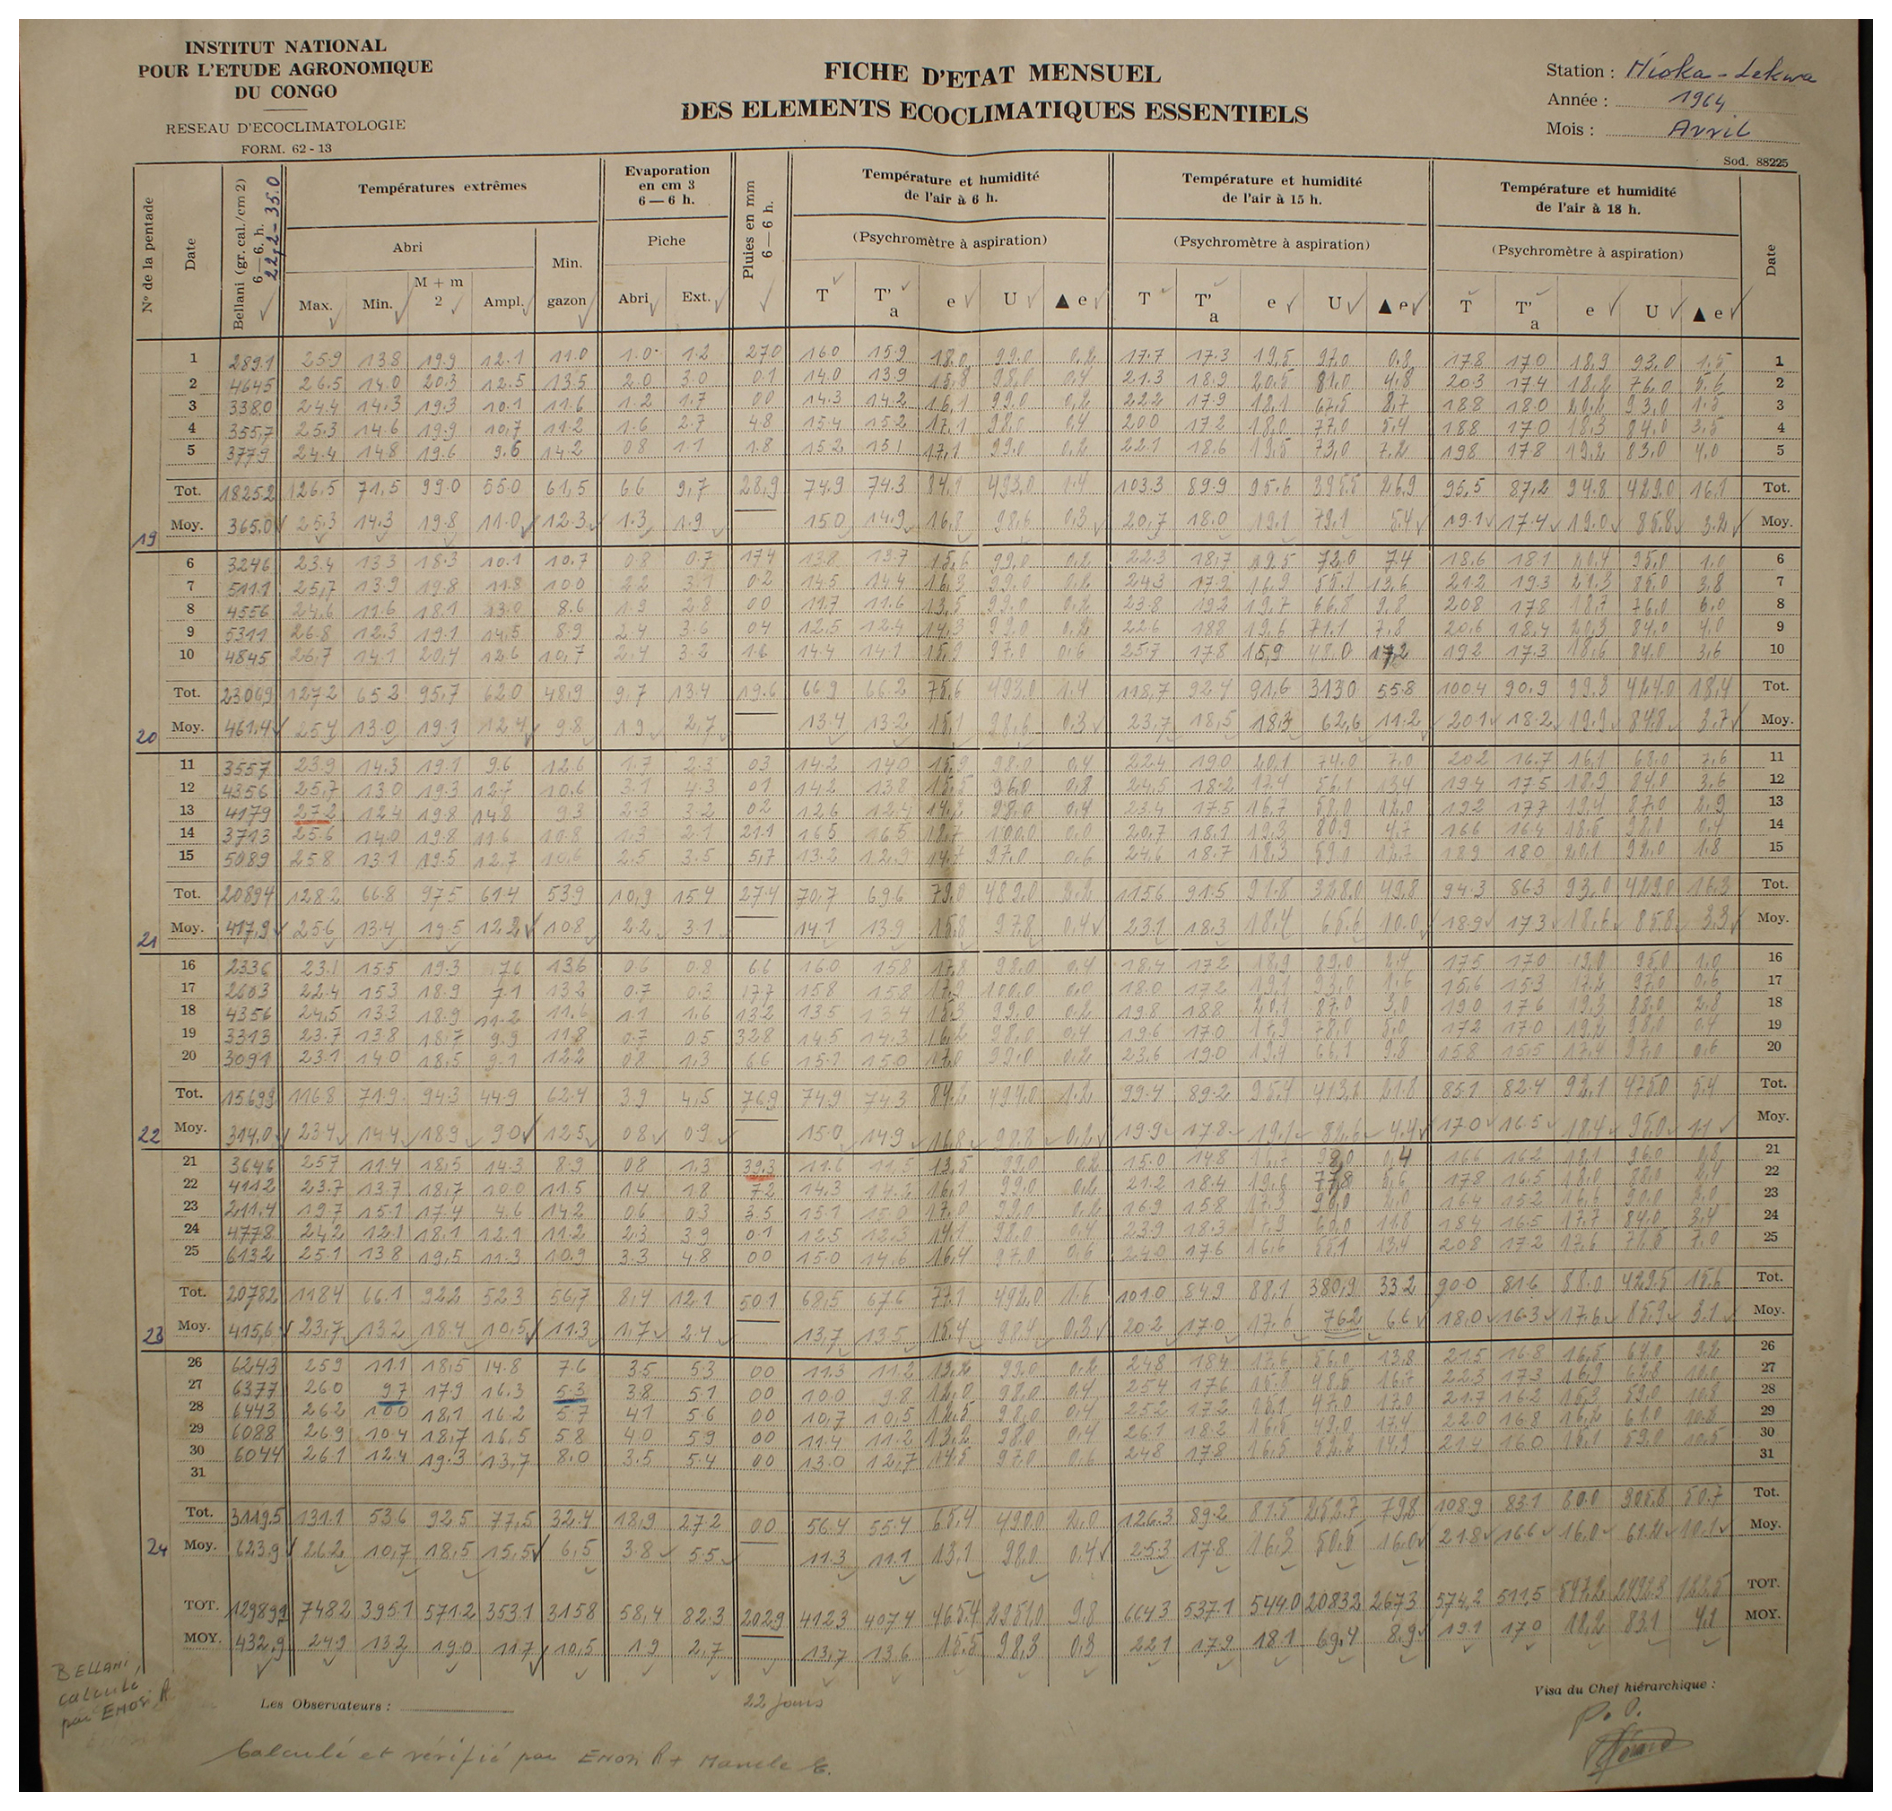 INSTITUT NATIONAL
POUR L'ETUDE AGRONOMIQUE
DU CONGO
RESEAU D'ECOCLIMATOLOGIE
FORM. 62 - 13
FICHE D'ETAT MENSUEL
DES ELEMENTS ECOCLIMATIQUES ESSENTIELS
Station : Mioka - Lekwa
Année : 1964
Mois : Avril
Sod. 88225
N° de la pentade
Date
Bellani (gr. cal./cm 2)
6 — 6. h.
22,2 - 35.0
Températures extrêmes
Abri
Max. Min. M + m 2 Ampl.
Min. gazon
Evaporation
en cm 3
6 — 6 h.
Piche
Abri Ext.
Pluies en mm
6 — 6 h.
Température et humidité
de l'air à 6 h.
(Psychromètre à aspiration)
T T' a e U ▲ e
Température et humidité
de l'air à 15 h.
(Psychromètre à aspiration)
T T' a e U ▲ e
Température et humidité
de l'air à 18 h.
(Psychromètre à aspiration)
T T' a e U ▲ e
Date
1 289.1 25.9 13.8 19.9 12.1 11.0 1.0 1.2 27.0 16.0 15.9 18.0 99.0 0.2 17.7 17.3 19,5 97.0 0.8 17.8 17.0 18,9 93,0 1.5 1
2 464.5 26.5 14.0 20.3 12.5 13.5 2.0 3.0 0.1 14.0 13.9 15,8 98,0 0.4 21.3 18.9 20,5 81.0 4,8 20.3 17.4 18,2 76,0 5,6 2
3 338.0 24.4 14.3 19.3 10.1 11.6 1.2 1.7 00 14.3 14.2 16,1 99.0 0,2 22.2 17.9 18,1 67,5 8,7 18.8 18.0 20,2 93,0 1.5 3
4 355,7 25.3 14.6 19.9 10,7 11.2 1.6 2.7 4.8 15.4 15.2 17.1 98,0 0,4 20.0 17.2 18,0 77,0 5,4 18.8 17.0 18,3 84,0 3,5 4
5 377.9 24.4 14.8 19.6 9.6 14.2 08 1.1 1.8 15.2 15.1 17,1 99,0 0,2 22.1 18.6 19,5 73,0 7,2 19.8 17.8 19,2 83,0 4,0 5
Tot. 1825.2 126.5 71,5 99.0 55.0 61,5 6.6 9,7 28,9 74.9 74.3 84,1 493,0 1.4 103.3 89.9 95,6 395.5 26,9 95,5 87,2 94.8 429.0 16.1 Tot.
19 Moy. 365.0 25.3 14.3 19.8 11.0 12.3 1.3 1.9 15.0 14.9 16,8 98,6 0.3 20,7 18.0 19,1 79,1 5,4 19.1 17.4 19,0 85.8 3.2 Moy.
6 324.6 23.4 13.3 18.3 10.1 10.7 0.8 0.7 17.4 13.8 13.7 15,6 99,0 0.2 22.3 18,7 19.5 72.0 7.4 18.6 18.1 20,4 95,0 1.0 6
7 511.1 25,7 13.9 19.8 11.8 10.0 2.2 3.1 0.2 14.5 14.4 16,3 99,0 0.2 24.3 17.9 16,9 55.1 13,6 21.2 19.3 21,3 85,0 3,8 7
8 455.6 24.6 11.6 18.1 13.0 8.6 1.9 2.8 00 11.7 11.6 13,5 99.0 0.2 23.8 19.2 19,7 66,8 9,8 20.8 17.8 18,7 76,0 6,0 8
9 531.1 26.8 12.3 19.1 14,5 8.9 2.4 3.6 04 12.5 12.4 14,3 99,0 0,2 22.6 18.8 19,6 71,1 7,8 20.6 18.4 20,3 84,0 4,0 9
10 484.5 26,7 14.1 20,4 12.6 10,7 2.4 3.2 1.6 14.4 14.1 15,9 97,0 0,6 25.7 17.8 15,9 48.0 17,2 19.2 17.3 18,6 84,0 3,6 10
Tot. 2306,9 127.2 65.2 95,7 62.0 48,9 9.7 13.4 19.6 66.9 66.2 75,6 493,0 1.4 118,7 92.4 91,6 313.0 55.8 100.4 90.9 99.3 424.0 18,4 Tot.
20 Moy. 461.4 25.4 13.0 19.1 12.4 9.8 1.9 2.7 13.4 13.2 15,1 98,6 0.3 23.7 18,5 18,3 62,6 11.2 20.1 18.2 19,9 84,8 3,7 Moy.
11 355.7 23.9 14.3 19.1 9.6 12.6 1.7 2.3 03 14.2 14.0 15,9 98,0 0,4 22.4 19.0 20,1 74,0 7,0 20.2 16.7 16,1 68,0 7,6 11
12 435.6 25,7 13.0 19.3 12.7 10.6 3.1 4.3 01 14.2 13.8 15,5 96,0 0,8 24,5 18.2 17,4 56,1 13,4 19.4 17.5 18,9 84,0 3,6 12
13 417.9 27.2 12.4 19.8 14.8 9.3 2.3 3.2 02 12.6 12.4 14,2 98,0 0,4 23.4 17.5 16,7 58,0 12,0 19.2 17.7 19,4 87,0 2,9 13
14 371.3 25.6 14.0 19.8 11.6 10.8 1.3 2.1 21.1 16.5 16.5 18,7 100.0 0.0 20,7 18.1 19,3 80,9 4,7 16.6 16.4 18,5 98,0 0,4 14
15 508.9 25.8 13.1 19.5 12.7 10,6 2.5 3.5 5,7 13.2 12.9 14,7 97,0 0,6 24,6 18.7 18,3 59,0 12,7 18.9 18.0 20,1 92,0 1.8 15
Tot. 2089.4 128.2 66.8 97.5 61.4 53.9 10,9 15.4 27.4 70,7 69.6 79,0 489,0 2,2 115.6 91.5 91,8 328,0 49,8 94.3 86.3 93,0 429,0 16.3 Tot.
21 Moy. 417,9 25.6 13.4 19.5 12.2 10.8 2.2 3.1 14.1 13.9 15,8 97,8 0,4 23.1 18.3 18,4 65,6 10.0 18.9 17.3 18,6 85.8 3.3 Moy.
16 233.6 23.1 15.5 19.3 7.6 13.6 0.6 0.8 6.6 16.0 15.8 17,8 98,0 0,4 18.4 17.2 18,9 89,0 2,4 17.5 17.0 19,0 95,0 1.0 16
17 260.3 22.4 15.3 18.9 7.1 13.2 0.7 0.3 17.7 15.8 15.8 17,9 100.0 0.0 18.0 17.2 19,1 93,0 1.6 15.6 15.3 17,2 97,0 0.6 17
18 435.6 24,5 13.3 18.9 11.2 11.6 1.1 1.6 13.2 13.5 13.4 15,3 99,0 0,2 19.8 18.8 20,1 87,0 3,0 19.0 17.6 19,3 88,0 2,8 18
19 331.3 23.7 13.8 18,7 9.9 11.8 0.7 0.5 32.8 14.5 14.3 16,2 98,0 0,4 19.6 17.0 17,9 78,0 5,0 17.2 17.0 19,2 98,0 0,4 19
20 309.1 23.1 14.0 18.5 9.1 12.2 0.8 1.3 6.6 15.1 15.0 17,0 99,0 0,2 23.6 19.0 19,4 66,1 9,8 15.8 15.5 17,4 97,0 0,6 20
Tot. 1569.9 116.8 71.9 94.3 44.9 62.4 3.9 4,5 76,9 74.9 74.3 84,2 494,0 1.2 99.4 89.2 95,4 413,1 21.8 85.1 82.4 92,1 475.0 5.4 Tot.
22 Moy. 314,0 23.4 14.4 18.9 9.0 12.5 08 0.9 15.0 14.9 16,8 98.8 0.2 19.9 17.8 19,1 82,6 4,4 17.0 16.5 18,4 95,0 1.1 Moy.
21 364.6 25.7 11.4 18,5 14.3 8.9 08 1.3 39,3 11.6 11.5 13,5 99,0 0,2 15.0 14.8 16,7 98,0 0,4 16.6 16.2 18,1 96,0 0,8 21
22 411.2 23.7 13.7 18,7 10.0 11.5 1.4 1.8 7.2 14,3 14.2 16,1 99,0 0,2 21.2 18.4 19,6 77,8 5,6 17.8 16.5 18,0 88,0 2,4 22
23 211.4 19.7 15.1 17.4 4.6 14.2 0.6 0.3 3.5 15.1 15.0 17,0 99,0 0,2 16.9 15.8 17,3 90,0 2,0 16.4 15.2 16,6 90,0 2,0 23
24 477.8 24.2 12.1 18.1 12.1 11.2 2.3 3.9 0.1 12.5 12.3 14,1 98,0 0,4 23.9 18.3 60,0 11.8 18.4 16.5 17,7 84,0 3,4 24
25 613.2 25.1 13.8 19,5 11.3 10.9 3.3 4.8 0.0 15.0 14,6 16,4 97,0 0,6 24.0 17.6 16,6 55,1 13,4 20.8 17.2 17,6 71,5 7,0 25
Tot. 2078.2 118.4 66.1 92.2 52.3 56,7 8,4 12.1 50.1 68,5 67.6 77,1 492,0 1.6 101.0 84.9 88,1 380,9 33.2 90.0 81.6 88.0 429.5 15.6 Tot.
23 Moy. 415,6 23,7 13.2 18.4 10,5 11.3 1,7 2.4 13,7 13.5 15,4 98,4 0,3 20.2 17.0 17,6 76.2 6.6 18.0 16.3 17,6 85,9 3.1 Moy.
26 624.3 25.9 11.1 18,5 14.8 7.6 3.5 5.3 00 11.3 11.2 13,2 99,0 0,2 24.8 18.4 17,6 56,0 13.8 21.5 16.8 16,5 64,0 9,2 26
27 637.7 26.0 9.7 17.9 16.3 5.3 3.8 5.1 00 10.0 9.8 12,0 98,0 0,4 25.4 17.6 15,8 48,6 16,7 22.3 17.3 16,9 62,8 10,0 27
28 644.3 26.2 10.0 18,1 16.2 5.7 4.1 5.6 00 10,7 10,5 12,5 98,0 0,4 25.2 17.2 15,1 47,0 17,0 21.7 16.2 15,3 59,0 10,8 28
29 608.8 26.9 10.4 18,7 16.5 5.8 4.0 5.9 00 11.4 11.2 13,2 98,0 0,4 26.1 18.2 16,6 49,0 17.4 22.0 16.8 16,2 61,0 10,2 29
30 604.4 26.1 12.4 19.3 13,7 8.0 3.5 5.4 00 13.0 12,7 14,5 97,0 0,6 24.8 17.8 16,5 52,2 14,9 21.4 16.0 15,1 59,0 10,5 30
31 31
Tot. 3119.5 131.1 53.6 92.5 77,5 32.4 18,9 27.2 00 56.4 55.4 65,4 490.0 2,0 126.3 89.2 81,5 252.7 79,8 108.9 83.1 80.0 305.8 50.7 Tot.
24 Moy. 623.9 26.2 10,7 18,5 15,5 6,5 3.8 5.5 11.3 11.1 13,1 98,0 0,4 25.3 17.8 16,3 50,5 16,0 21.8 16.6 16,0 61.2 10.1 Moy.
TOT. 12989,1 748.2 395.1 571.2 353.1 315.8 58,4 82.3 202.9 412.3 407.4 465.4 2951.0 9.8 664.3 537.1 544.0 2083.2 267.3 574,2 511,5 547.2 2492.3 122.5 TOT.
MOY. 432,9 24.9 13.2 19.0 11.7 10,5 1.9 2,7 13,7 13.6 15.5 98,3 0,3 22.1 17.9 18.1 69,4 8,9 19.1 17.0 18,2 83.1 4,1 MOY.
BELLANI,
calculé
par Emosi R
Les Observateurs :
22 jours
Visa du Chef hiérarchique :
P. O.
Calculé et vérifié par Emosi R + Mancle E.